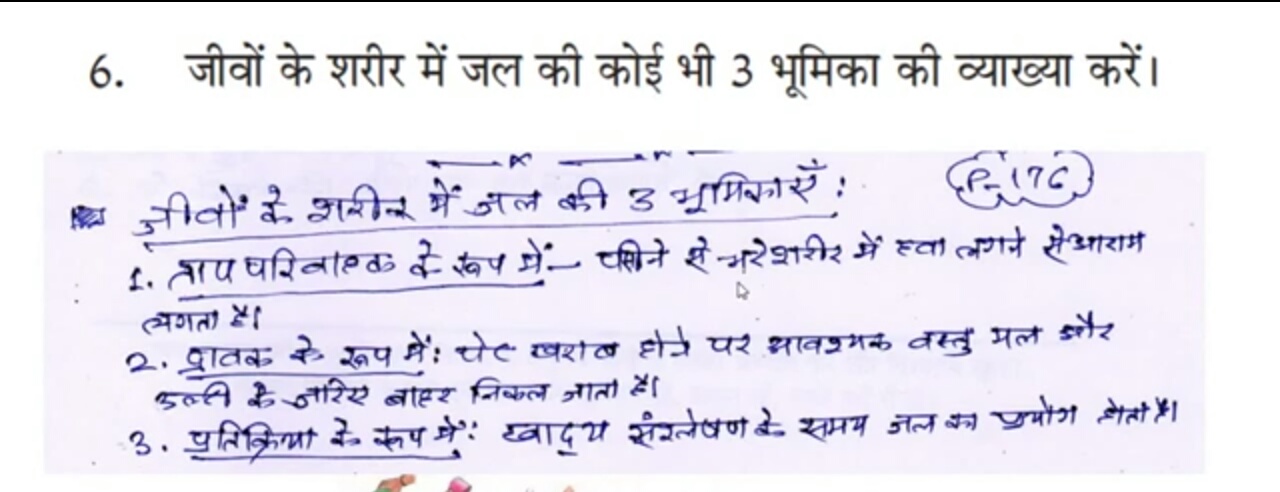 6. जीवों के शरीर में जल की कोई भी 3 भूमिका की व्याख्या करें।
P-176
जीवों के शरीर में जल की 3 भूमिकाएँ:
1. ताप परिवाहक के रूप में - पसीने से भरे शरीर में हवा लगने से आराम
लगता है।
2. द्रावक के रूप में: पेट खराब होने पर आवश्यक वस्तु मल और
उल्टी के जरिए बाहर निकल जाता है।
3. प्रतिक्रिया के रूप में: खाद्य संश्लेषण के समय जल का प्रयोग होता है।